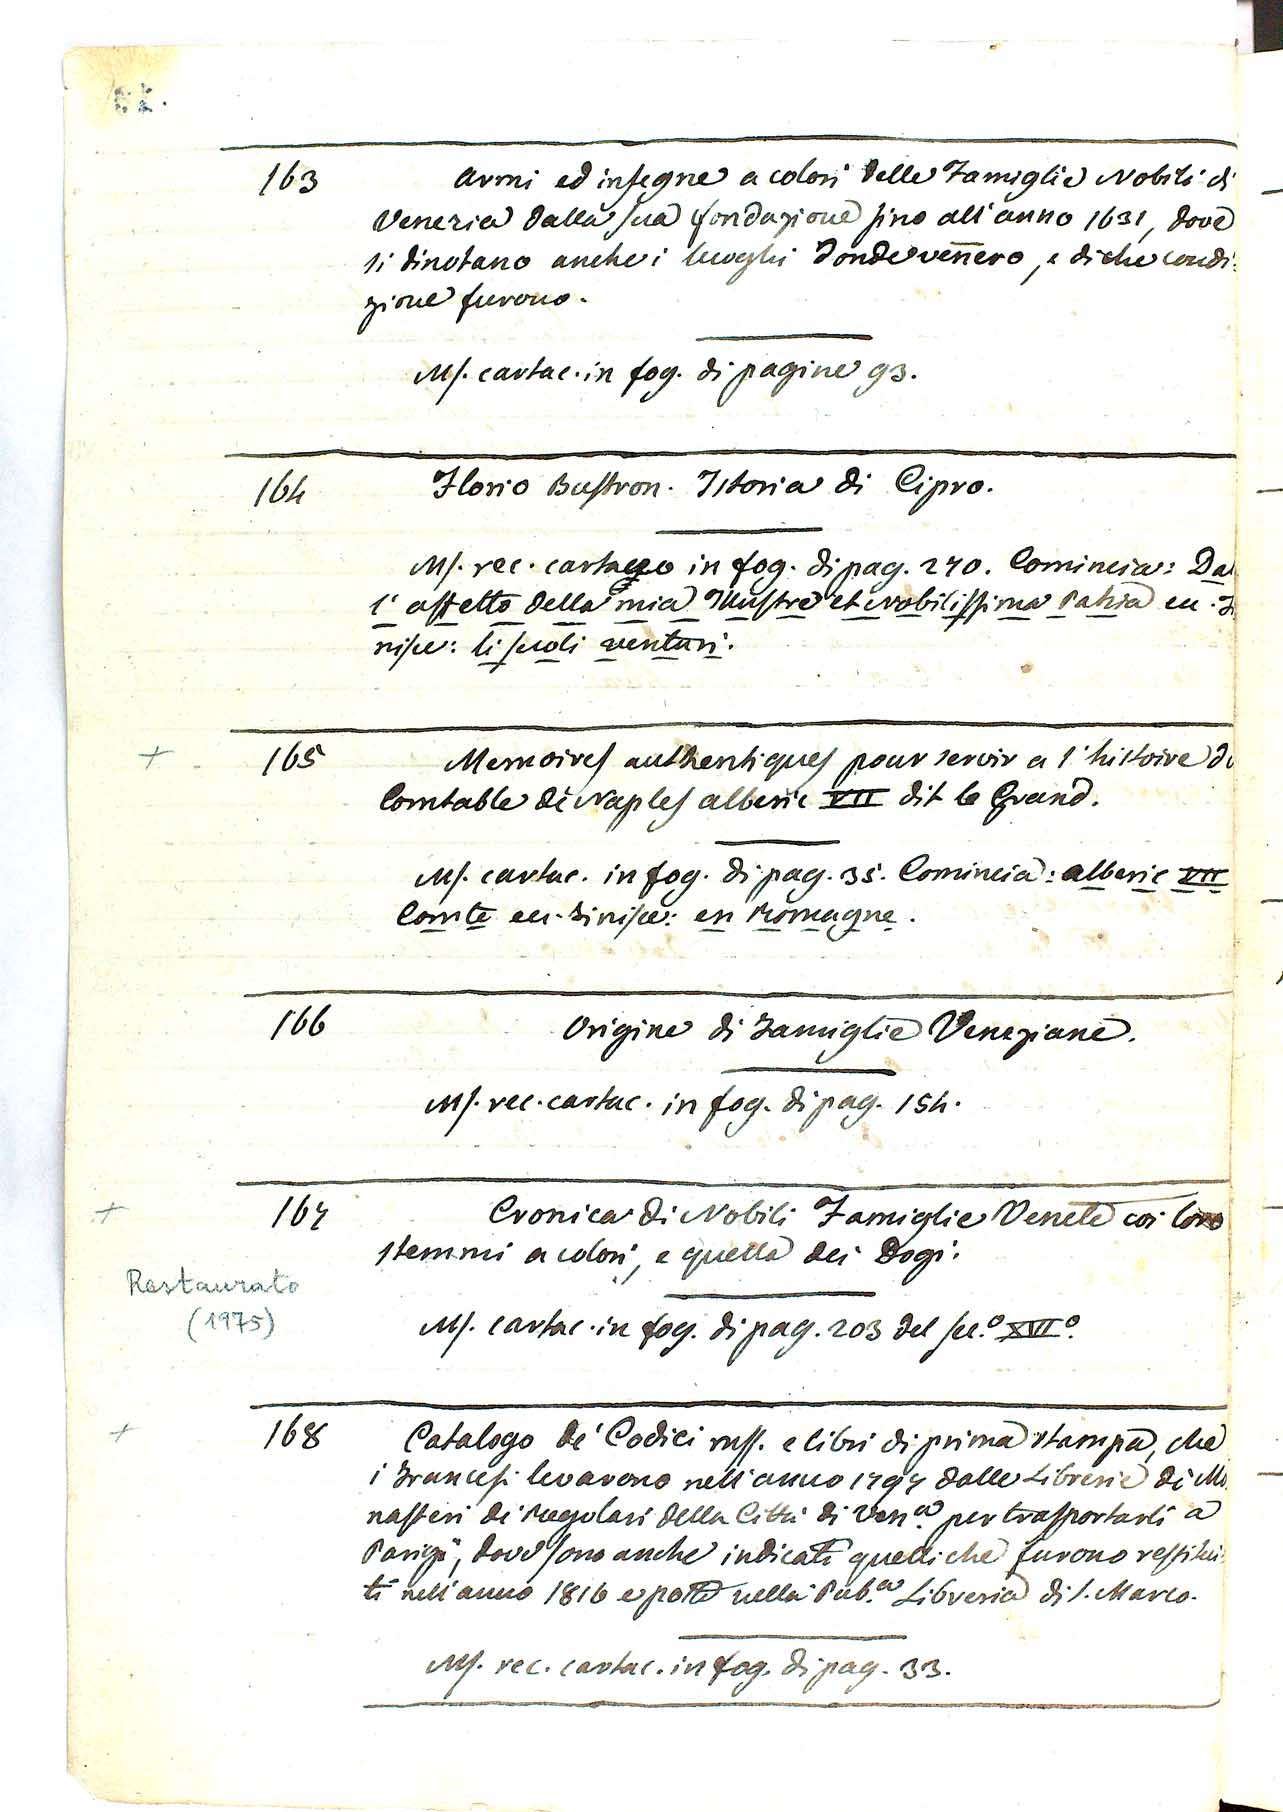 62.
163
Armi ed insegne a colori delle Famiglie Nobili di
Venezia dalla sua fondazione sino all'anno 1631, dove
si dinotano anche i luoghi donde vennero, e di che condi:
zione furono.
Ms. cartac. in fog. di pagine 93.
164
Florio Bustron. Istoria di Cipro.
Ms. rec. cartaceo in fog. di pag. 240. Comincia: Dal
l'affetto della mia Illustre et Nobilissima Patria ec.
nisce: li scoli ventari.
+ 165
Memoires authentiques pour servir a l'histoire du
Comtable de Naples Alberic VII dit le Grand.
Ms. cartac. in fog. di pag. 35. Comincia: Alberic VII
Comte ec. Finisce: en Romagne.
166
Origine di Famiglie Veneziane.
Ms. rec. cartac. in fog. di pag. 154.
+ 167
Cronica di Nobili Famiglie Venete coi loro
stemmi a colori, e quella dei Dogi.
Restaurato
(1975)
Ms. cartac. in fog. di pag. 203 del sec.º XVIIº.
+ 168
Catalogo de' Codici mss. e libri di prima stampa, che
i Francesi levarono nell'anno 1797 dalle Librerie di Mo
nasteri de' Regolari della Città di Ven.a per trasportarli a
Parigi, dove sono anche indicati quelli che furono restitui:
ti nell'anno 1816 e posti nella Pub.a Libreria di S. Marco.
Ms. rec. cartac. in fog. di pag. 33.